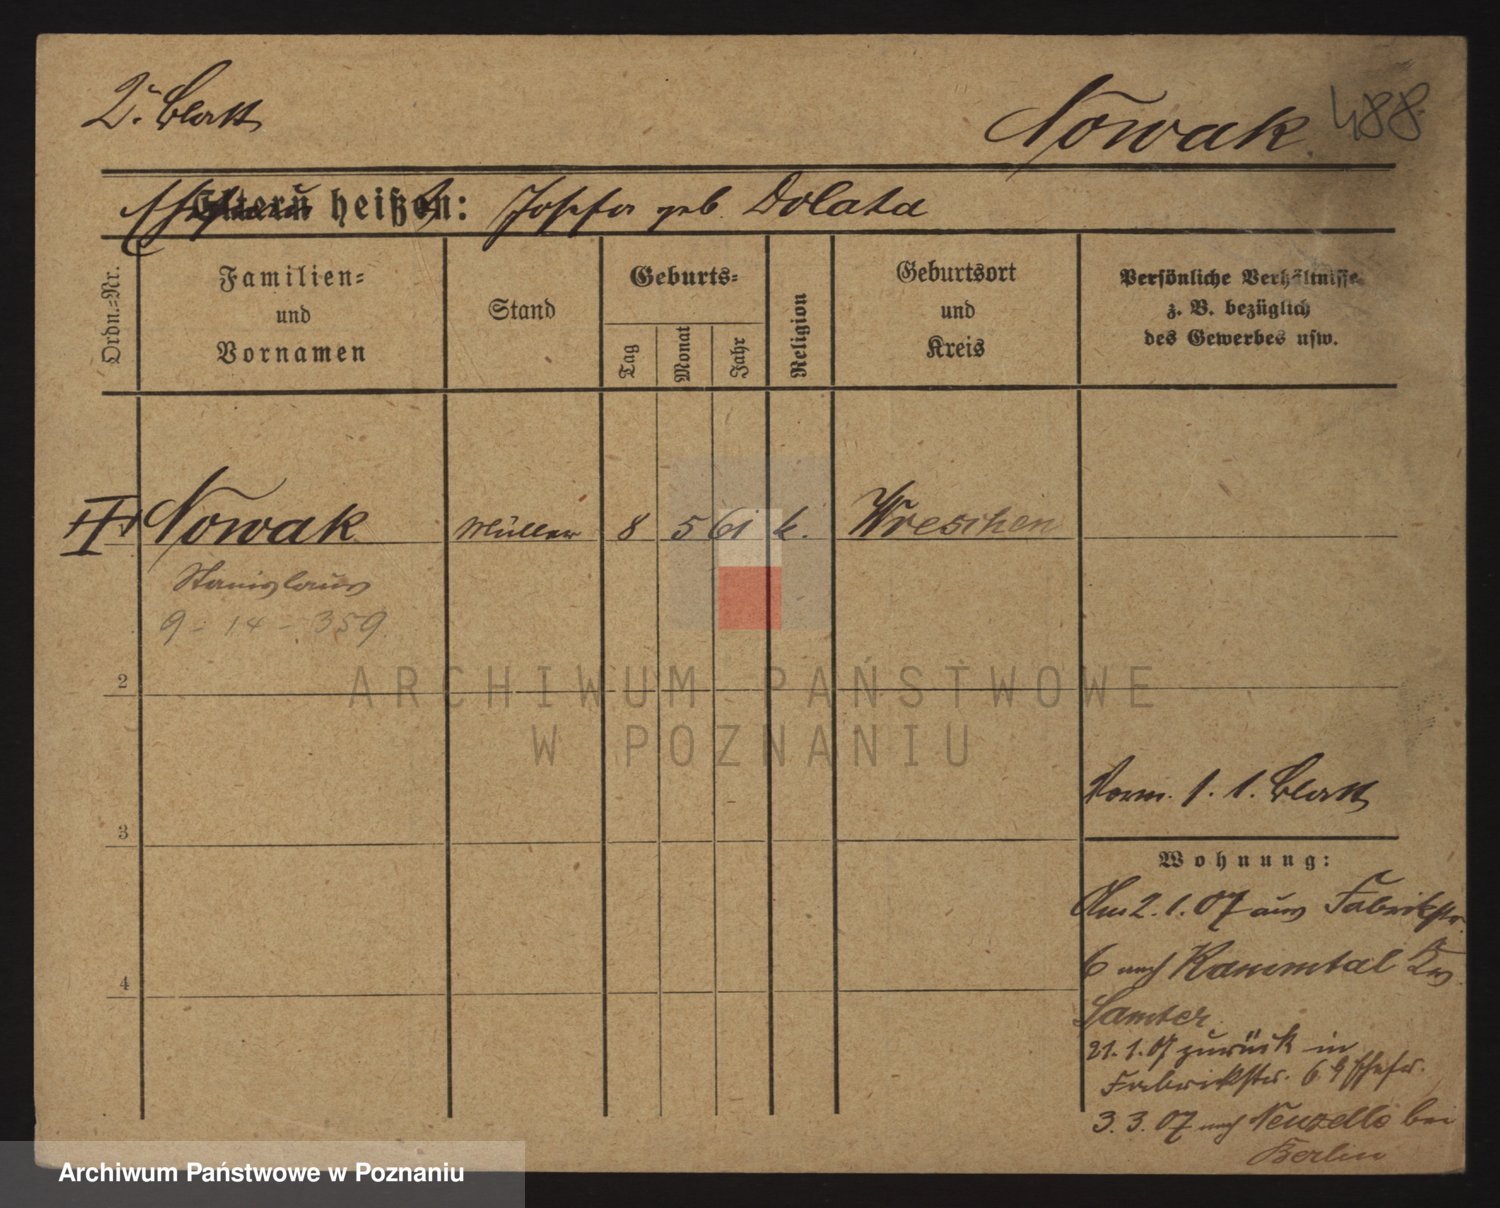 2. Blatt
Nowak 488
Eltern heißen: Josefa geb. Dolata
Ordn.-Nr.
Familien-
und
Vornamen
Stand
Geburts-
Tag
Monat
Jahr
Religion
Geburtsort
und
Kreis
Persönliche Verhältnisse
z. B. bezüglich
des Gewerbes usw.
Nowak Müller 8 5 61 k. Wreschen
Stanislaus
9 - 14 - 359
2
ARCHIWUM PAŃSTWOWE
W POZNANIU
Vorm. s. 1. Blatt
3
Wohnung:
Am 2.1.07 aus Fabrikstr.
6 nach Kammtal Krs
4
Samter
21.1.07 zurück in
Fabrikstr. 6
3.3.07 nach Neuzelle bei
Berlin
Archiwum Państwowe w Poznaniu